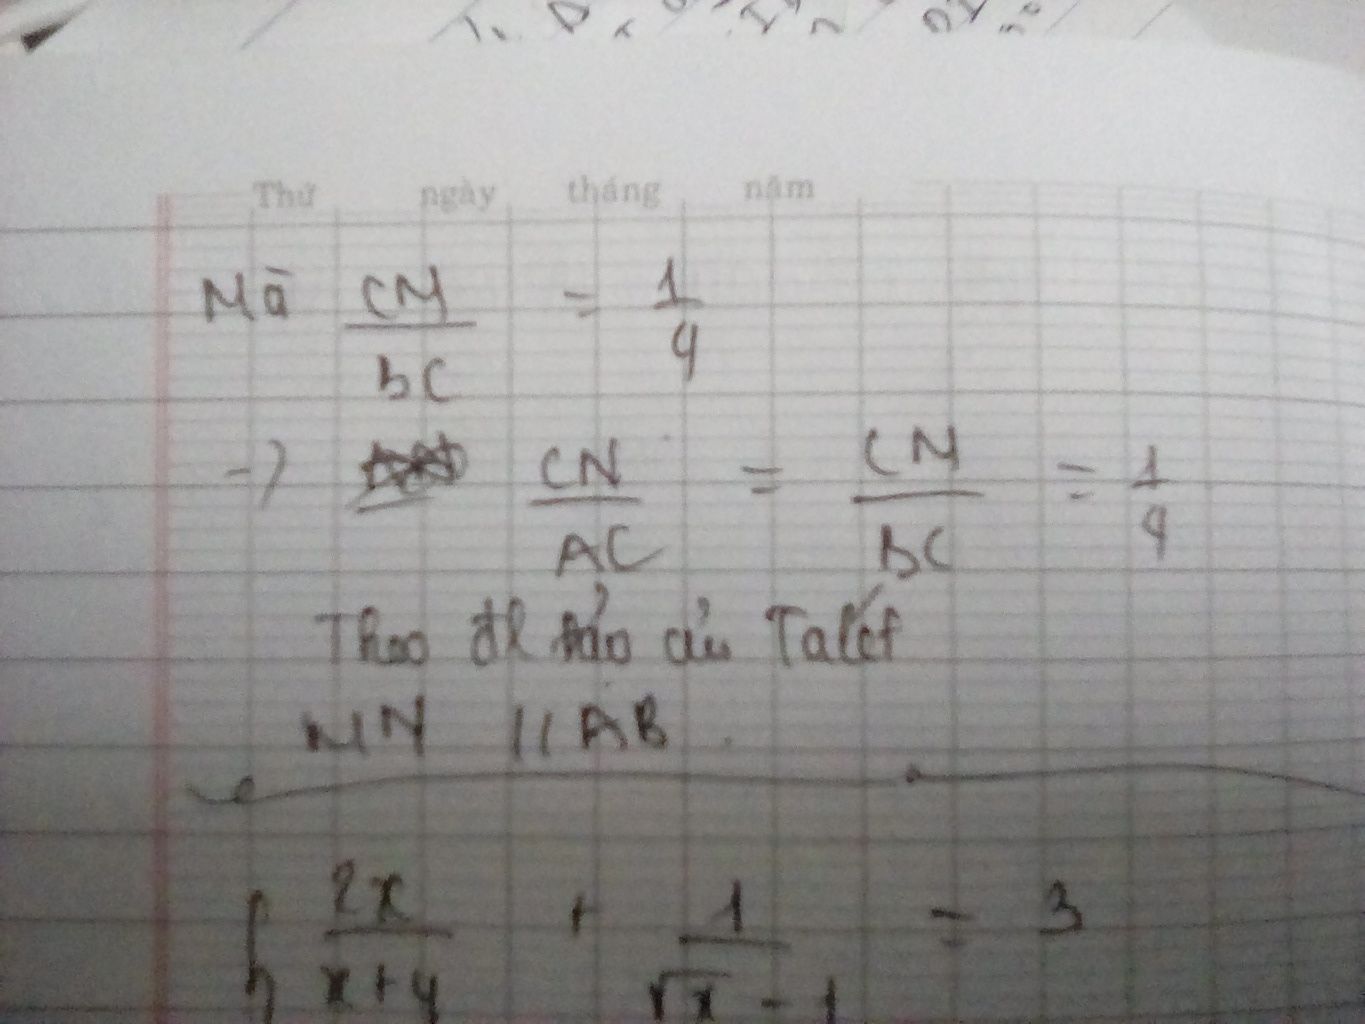 Thứ ngày tháng năm
Mà CM/BC = 1/4
-> CN/AC = CM/BC = 1/4
Theo đl đảo của Talét
MN // AB.
{ 2x/(x+y) + 1/(√x - 1) = 3